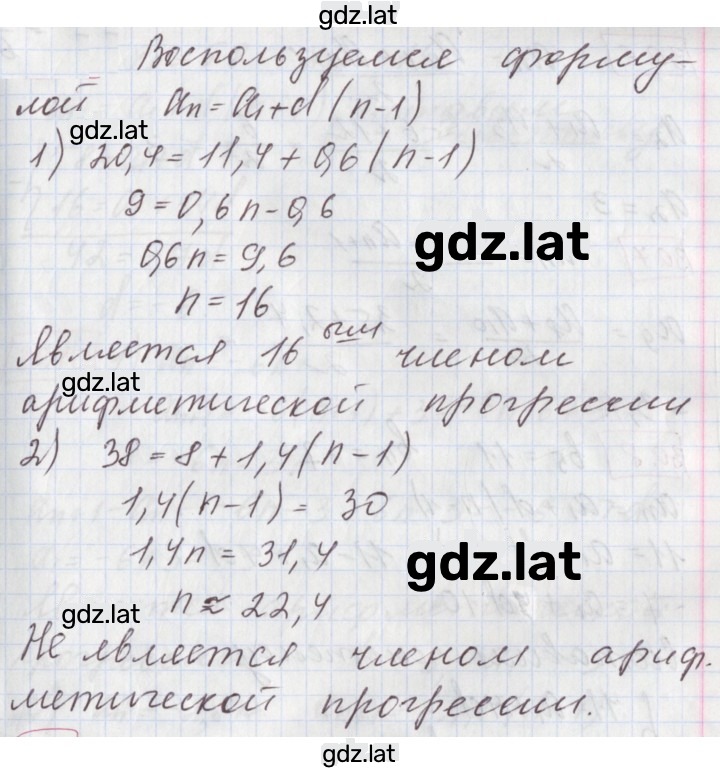 gdz.lat
Воспользуемся форму-
лой aₙ = a₁ + d(n-1)
gdz.lat
1) 20,4 = 11,4 + 0,6(n-1)
9 = 0,6n - 0,6
gdz.lat
0,6n = 9,6
n = 16
Является 16 ым членом
gdz.lat
арифметической прогрессии
2) 38 = 8 + 1,4(n-1)
1,4(n-1) = 30
1,4n = 31,4
gdz.lat
n ≈ 22,4
gdz.lat
Не является членом ариф.
метической прогрессии.
gdz.lat